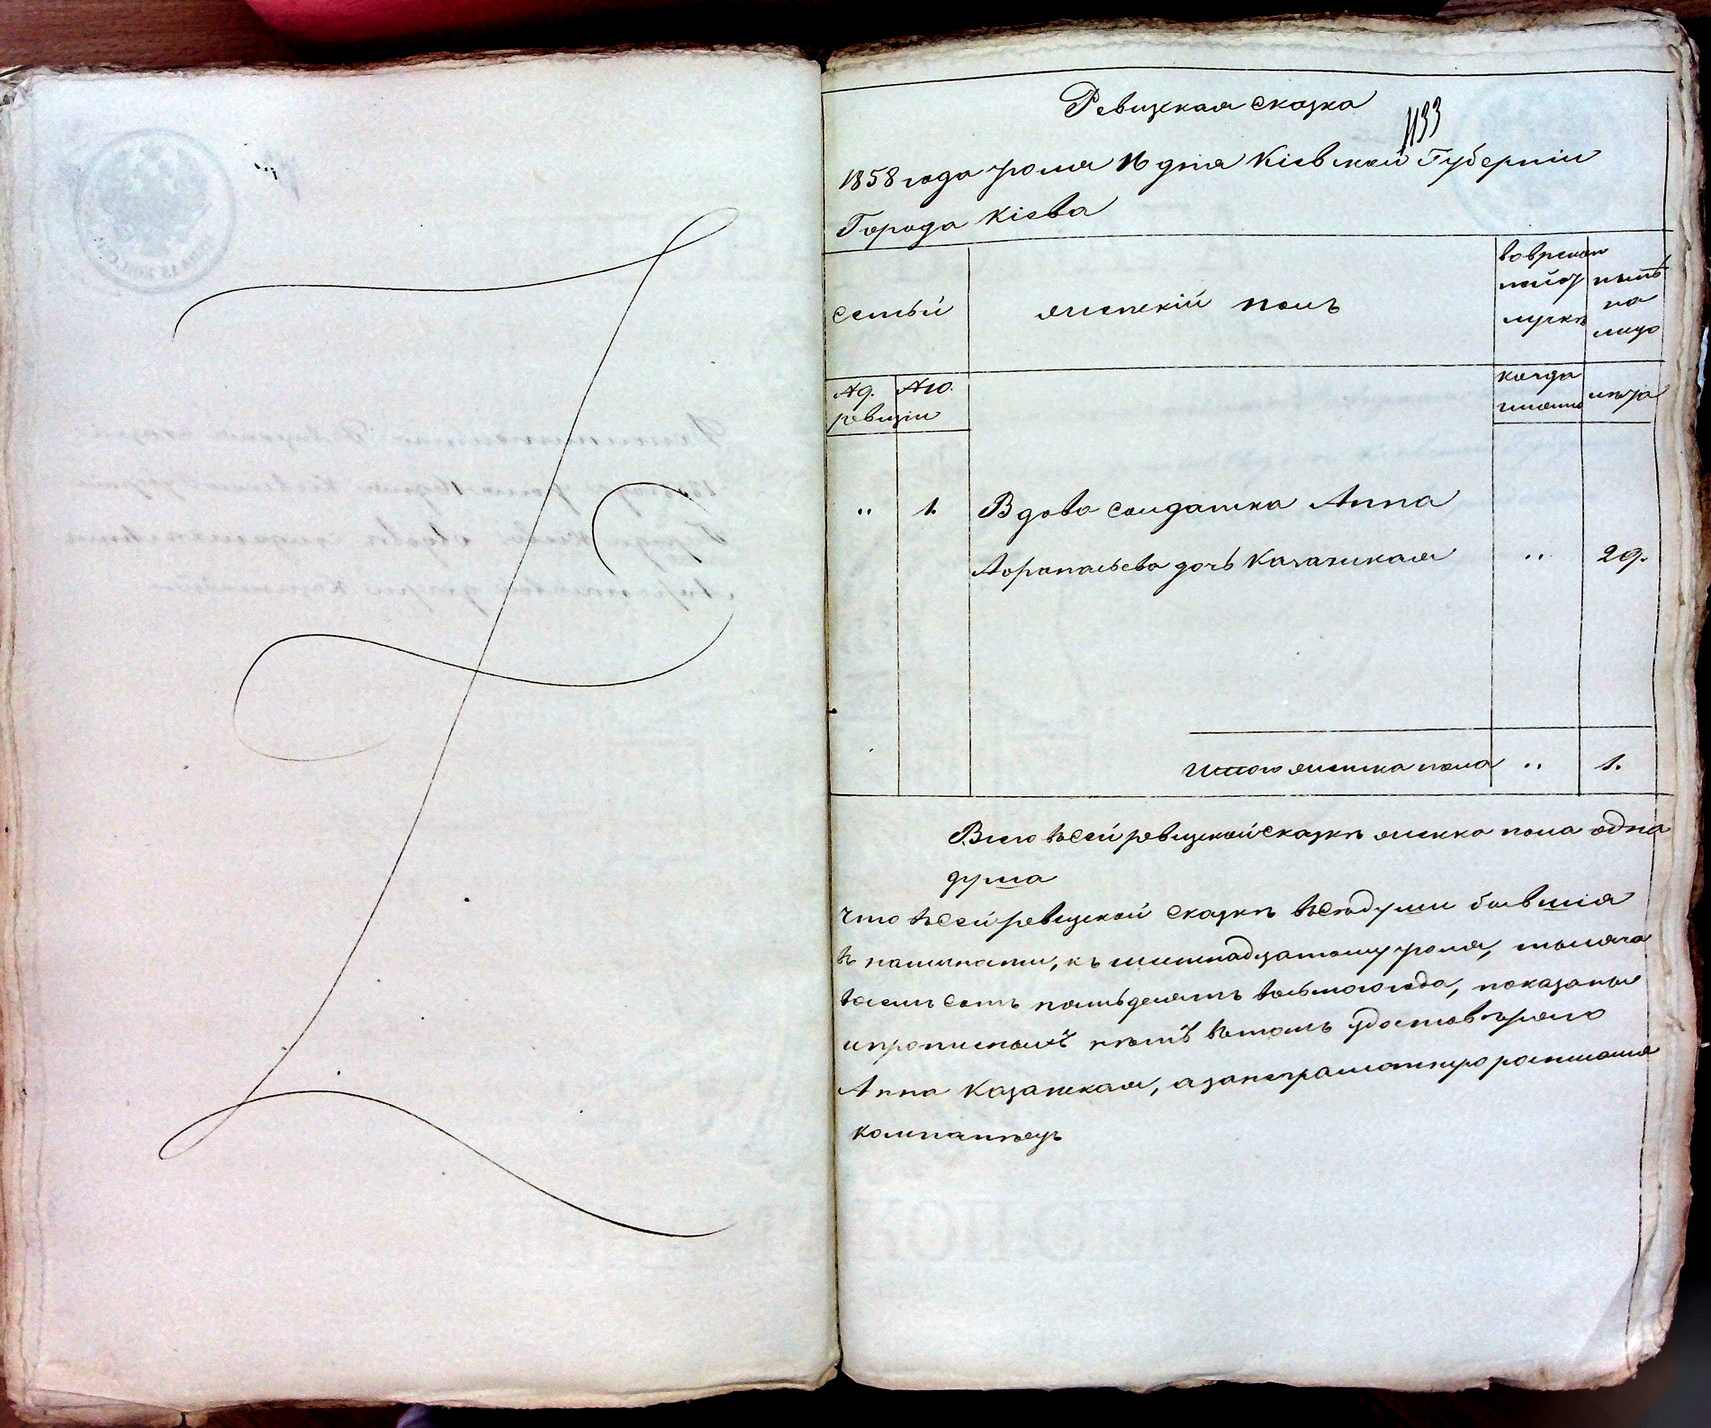 Ревизская сказка
1133
1858 года июня 16 дня Кіевской Губерніи
Города Кіева
Семьи
женскій полъ
во времен
ной от
лучкѣ
нынѣ
на
лицо
№ 9. № 10.
ревизіи
когда
именно
лѣта
" 1. Вдова солдатка Анна
дочь Казанская " 29.
Итого женска пола " 1.
Всего въ сей ревизской сказкѣ женска пола одна
душа
Что въ сей ревизской сказкѣ всѣ души бывшія
въ наличности, къ шестнадцатому июня, тысяча
восемь сотъ пятьдесятъ восьмого года, показаны
и прописныхъ нѣтъ въ томъ удостовѣряю
Анна Казанская, а за неграмотную росписался